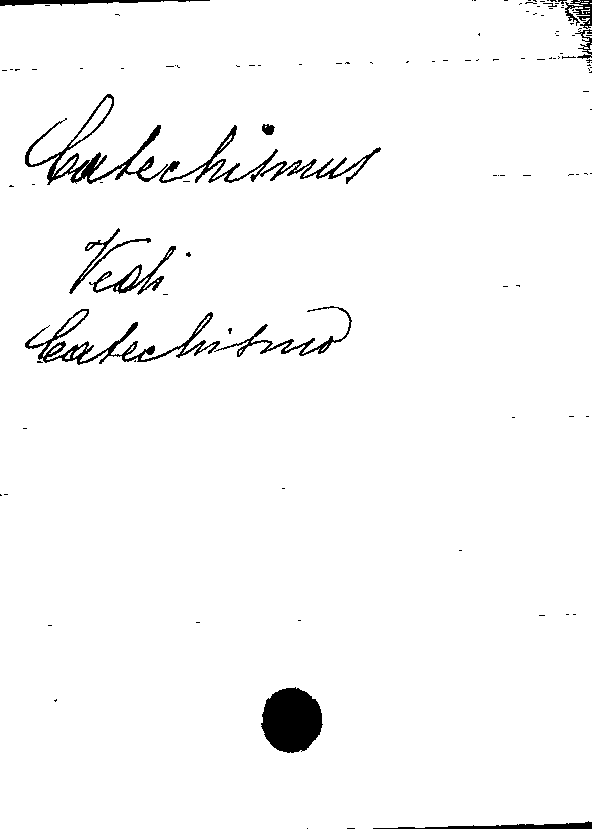 Catechismus
Vedi
Catechismo